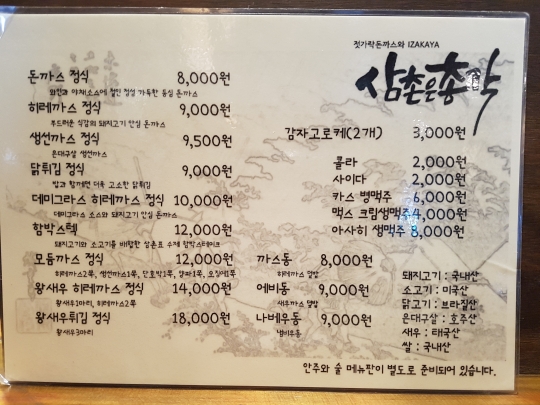 젓가락돈까스와 IZAKAYA
삼촌은총각
돈까스 정식 8,000원
와인과 야채소스에 절인 정성 가득한 등심 돈까스
히레까스 정식 9,000원
부드러운 식감의 돼지고기 안심 돈까스
생선까스 정식 9,500원
은대구살 생선까스
닭튀김 정식 9,000원
밥과 함께면 더욱 고소한 닭튀김
데미그라스 히레까스 정식 10,000원
데미그라스 소스와 돼지고기 안심 돈까스
함박스텍 12,000원
돼지고기와 소고기를 배합한 삼촌표 수제 함박스테이크
모듬까스 정식 12,000원
히레까스2쪽, 생선까스1쪽, 단호박1쪽, 양파1쪽, 오징어1쪽
왕새우 히레까스 정식 14,000원
왕새우1마리, 히레까스2쪽
왕새우튀김 정식 18,000원
왕새우3마리
감자고로케(2개) 3,000원
콜라 2,000원
사이다 2,000원
카스 병맥주 6,000원
맥스 크림생맥주 4,000원
아사히 생맥주 8,000원
까스동 8,000원
히레까스 덮밥
에비동 9,000원
새우까스 덮밥
나베우동 9,000원
냄비우동
돼지고기 : 국내산
소고기 : 미국산
닭고기 : 브라질산
은대구살 : 호주산
새우 : 태국산
쌀 : 국내산
안주와 술 메뉴판이 별도로 준비되어 있습니다.